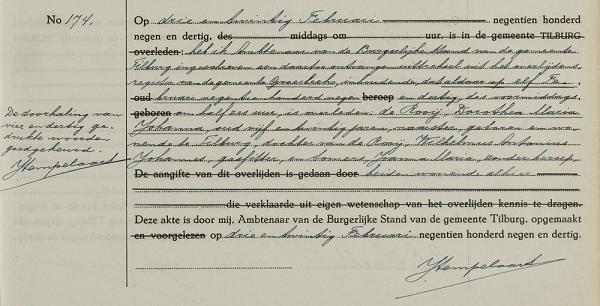 No 174.
Op drie en twintig Februari negentien honderd
negen en dertig, des middags om uur, is in de gemeente TILBURG
overleden: heb ik Ambtenaar van de Burgerlijke Stand van de gemeente
Tilburg ingeschreven een daartoe ontvangen uittreksel uit het overlijdens
register van de gemeente inhoudende, dat aldaar op elf Fe
oud bruari negentien honderd negen beroep en dertig, des voormiddags
geboren om half zes ure, is overleden: de Rooij, Dorothea Maria
Johanna, oud vijf en twintig jaren, naaister, geboren en wo
nende te Tilburg, dochter van de Rooij, Wilhelmus Antonius
Johannes, gasfitter, en Somers, Joanna Maria, zonder beroep,
De aangifte van dit overlijden is gedaan door beiden wonende alhier
die verklaarde uit eigen wetenschap van het overlijden kennis te dragen.
Deze akte is door mij, Ambtenaar van de Burgerlijke Stand van de gemeente Tilburg, opgemaakt
en voorgelezen op drie en twintig Februari negentien honderd negen en dertig.
De doorhaling van
vier en dertig ge
drukte woorden
goedgekeurd.